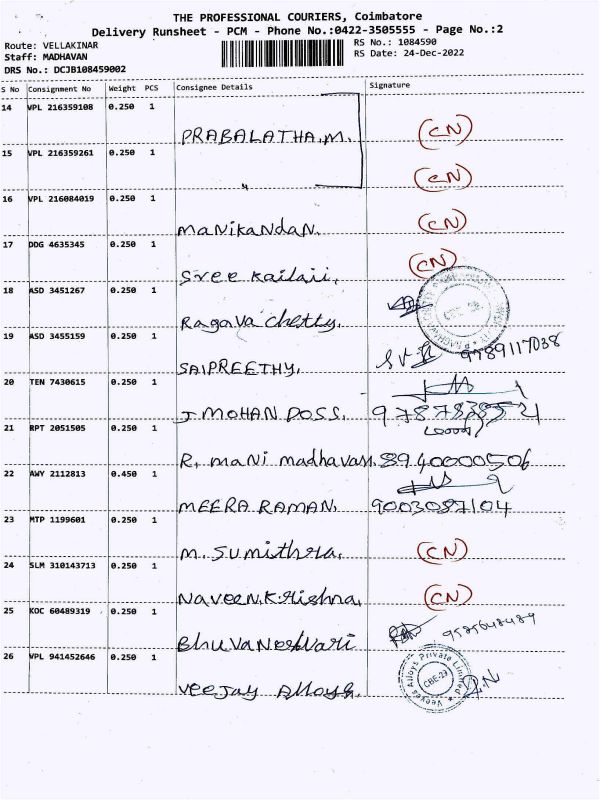 THE PROFESSIONAL COURIERS, Coimbatore
Delivery Runsheet - PCM - Phone No.:0422-3505555 - Page No.:2
Route: VELLAKINAR
RS No.: 1084590
Staff: MADHAVAN
RS Date: 24-Dec-2022
DRS No.: DCJB108459002
S No Consignment No Weight PCS Consignee Details Signature
14 VPL 216359108 0.250 1
PRABALATHA.M. CN
15 VPL 216359261 0.250 1
CN
16 VPL 216084019 0.250 1
MaNikaNdaN. CN
17 DDG 4635345 0.250 1
Sree Kailaii. CN
18 ASD 3451267 0.250 1
Ragava Chetty.
19 ASD 3455159 0.250 1
SAIPREETHY. 9789117038
20 TEN 7430615 0.250 1
J. MOHAN DOSS.
21 RPT 2051505 0.250 1
R. mani madhavan. 8940000506
22 AWY 2112813 0.450 1
MEERA RAMAN. 9003087104
23 MTP 1199601 0.250 1
M. Sumithra. CN
24 SLM 310143713 0.250 1
NaveeN.Krishna. CN
25 KOC 60489319 0.250 1
BhuvaNeshvari
26 VPL 941452646 0.250 1
Veejay Alloys. Alloys Private Limited CBE-29